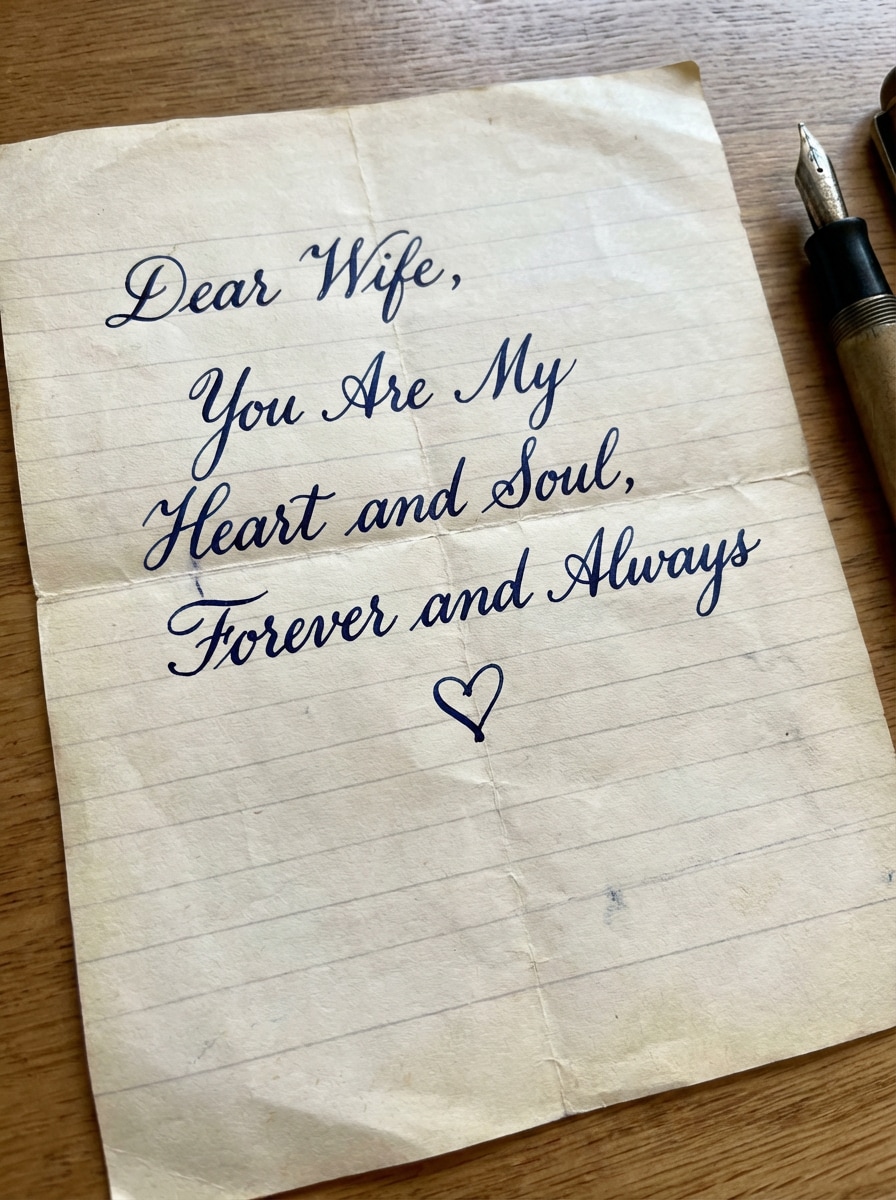 Dear Wife,
You Are My
Heart and Soul,
Forever and Always